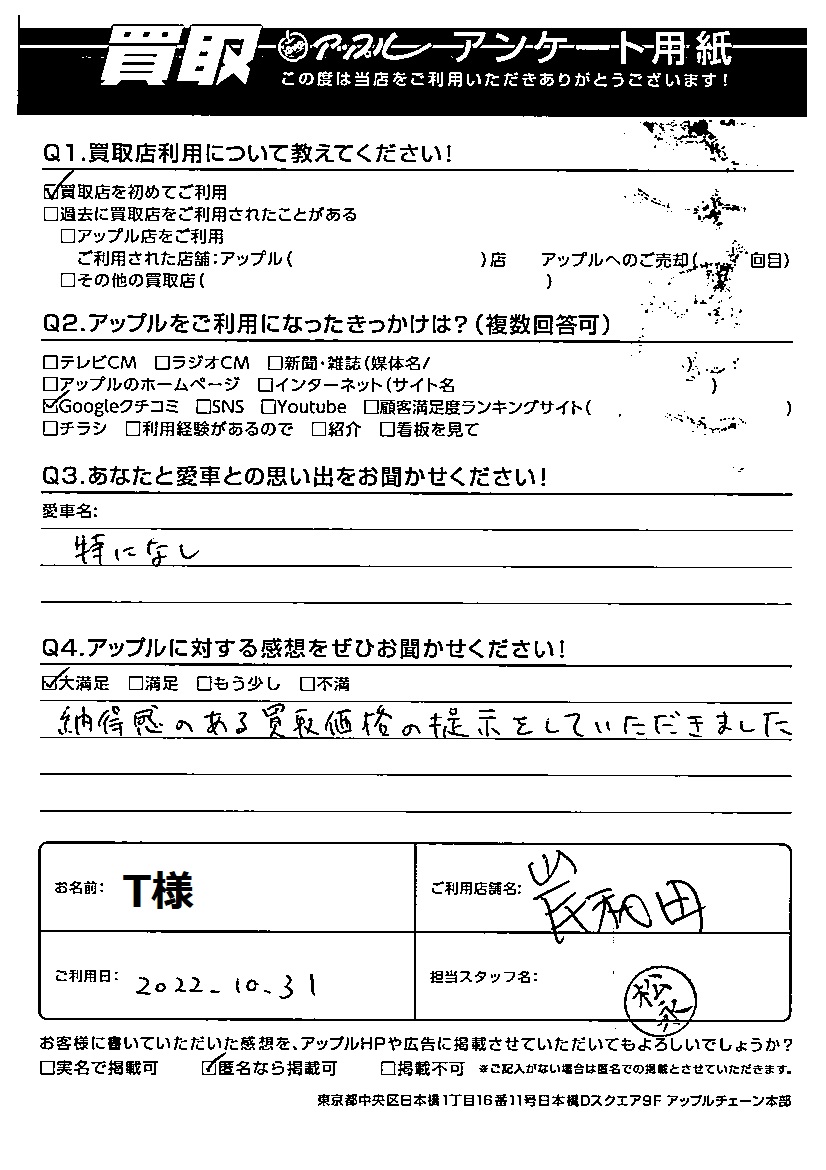 買取 アップル アンケート用紙
この度は当店をご利用いただきありがとうございます!
Q1.買取店利用について教えてください!
☑買取店を初めてご利用
□過去に買取店をご利用されたことがある
□アップル店をご利用
ご利用された店舗:アップル( )店 アップルへのご売却( 回目)
□その他の買取店( )
Q2.アップルをご利用になったきっかけは?(複数回答可)
□テレビCM □ラジオCM □新聞・雑誌(媒体名/ )
□アップルのホームページ □インターネット(サイト名 )
☑Googleクチコミ □SNS □Youtube □顧客満足度ランキングサイト( )
□チラシ □利用経験があるので □紹介 □看板を見て
Q3.あなたと愛車との思い出をお聞かせください!
愛車名:
特になし
Q4.アップルに対する感想をぜひお聞かせください!
☑大満足 □満足 □もう少し □不満
納得感のある買取価格の提示をしていただきました
お名前: T様 ご利用店舗名: 岸和田
ご利用日: 2022.10.31 担当スタッフ名:
お客様に書いていただいた感想を、アップルHPや広告に掲載させていただいてもよろしいでしょうか?
□実名で掲載可 ☑匿名なら掲載可 □掲載不可 ※ご記入がない場合は匿名での掲載とさせていただきます。
東京都中央区日本橋1丁目16番11号日本橋Dスクエア9F アップルチェーン本部